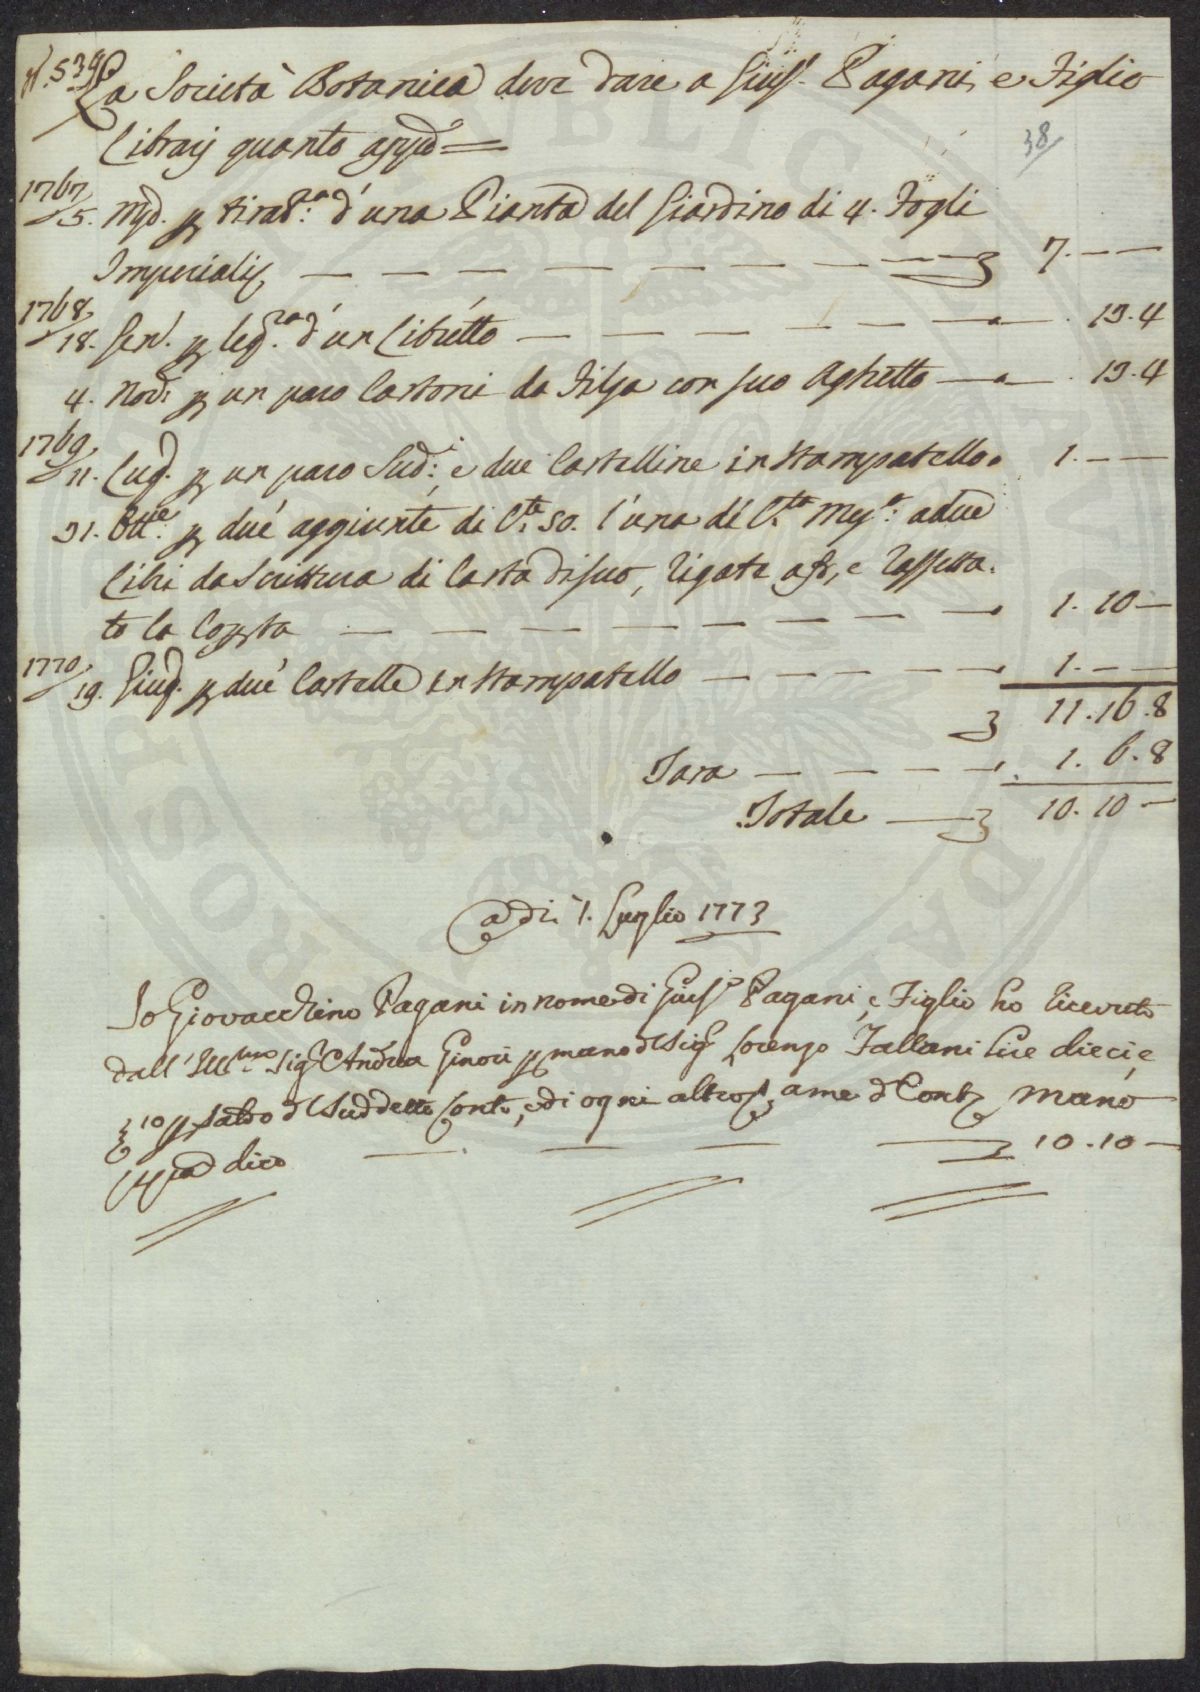 N. 539
La Società Botanica deve dare a Gius.e Pagani, e Figlio
38
Libraij quanto app.o
1767
5. Mag. p tirat.ra d'una Pianta del Giardino di 4. Fogli
Imperiali — 7. — —
1768
18. Gen. p leg.ra d'un Libretto — 13. 4
4. Nov. p un paro Cartoni da Filza con suo Aghetto — 13. 4
1769
11. Lug. p un paro Sud.i e due Cartelline in stampatello. 1. — —
31. Ott.e p due aggiunte di C.te 50. l'una di C.ta Mez.a a due
Libri da Scrittura di Carta di suo, rigate, e rassetta-
to la Coperta — 1. 10 —
1770
19. Giug. p due Cartelle in stampatello — 1. — —
11. 16. 8
Tara — 1. 6. 8
Totale — 10. 10 —
Adi 1. Luglio 1773
Io Giovacchino Pagani in nome di Gius.e Pagani, e Figlio ho ricevuto
dall' Ill.mo Sig.r Andrea Ginori p mano d Sig.r Lorenzo Fallani lire dieci, e
10 p saldo d Suddetto Conto, e di ogni altro a me d Cont.
mano
dico — 10. 10 —